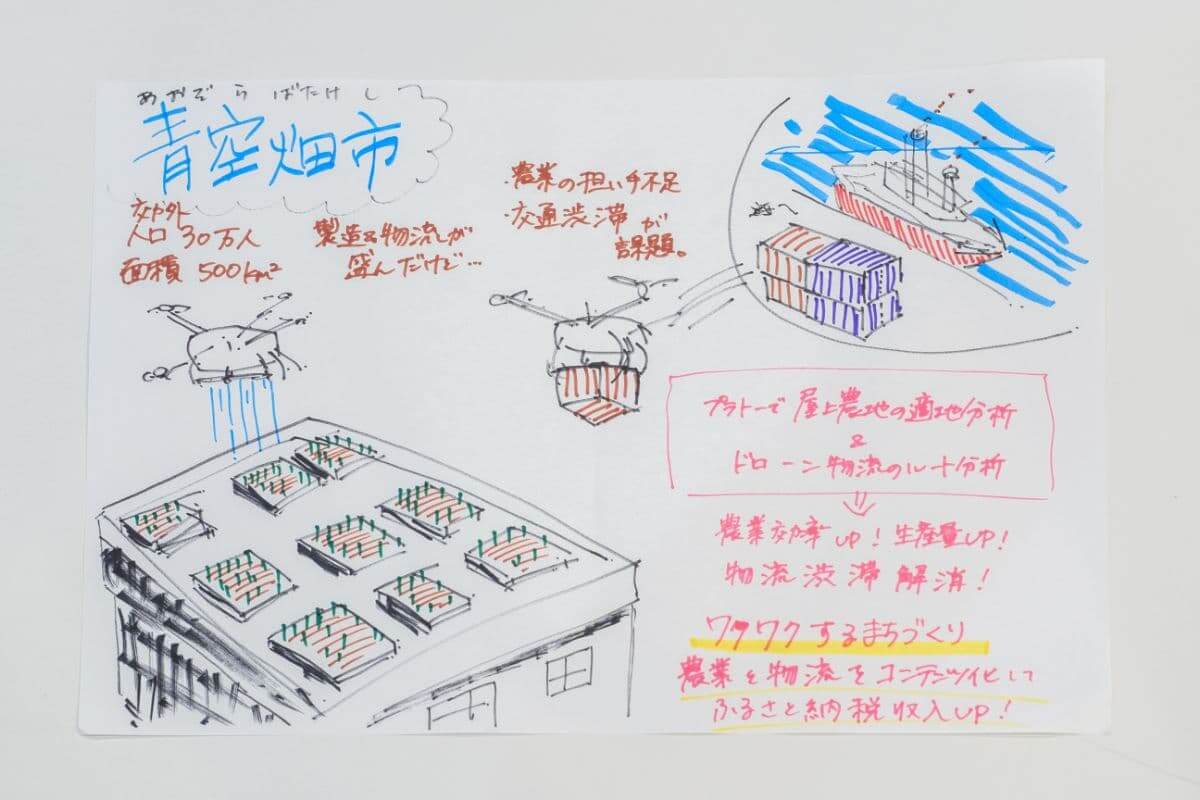 あおぞらばたけし
青空畑市
郊外
人口 30万人
面積 500km²
製造&物流が
盛んだけど…
・農業の担い手不足
・交通渋滞が
課題。
プラトーで 屋上農地の適地分析
&
ドローン物流のルート分析
農業効率UP! 生産量UP!
物流渋滞解消!
ワクワクするまちづくり
農業と物流をコンテンツ化して
ふるさと納税収入UP!